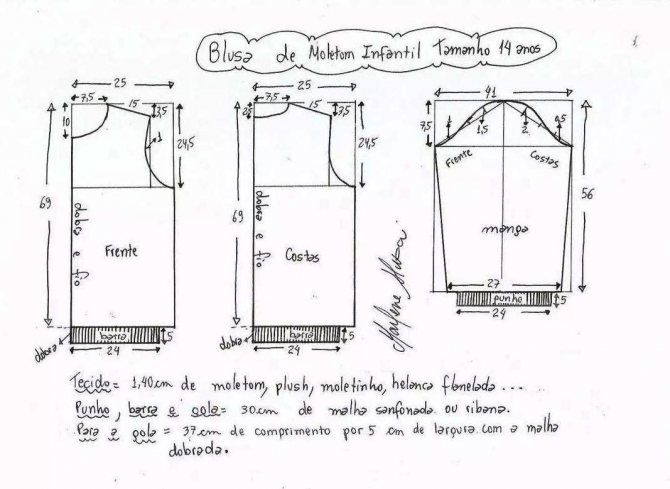 Blusa de Moletom Infantil Tamanho 14 anos
25
7,5
15
3,5
10
1
24,5
69
dobra e fio
Frente
barra
5
dobra
24
25
7,5
15
2,5
3,5
24,5
69
dobra e fio
Costas
barra
5
dobra
24
41
7,5
1
1,5
2
0,5
Frente
Costas
56
manga
27
punho
5
24
Tecido = 1,40cm de moletom, plush, moletinho, helanca flanelada ....
Punho, barra e gola = 30cm de malha sanfonada ou ribana.
Para a gola = 37cm de comprimento por 5 cm de largura com a malha
dobrada.